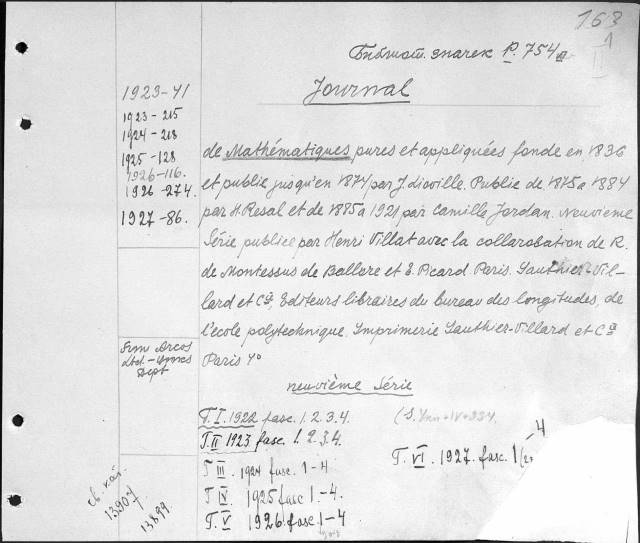 163
1
II
Библиот. значек P. 754a
Journal
1923-41
1923-215
1924-218
1925-128
1926-116.
1926-274.
1927-86.
de Mathématiques pures et appliquées fonde en 1836
et publie jusqu'en 1874 par J. Lioville. Publie de 1875 a 1884
par H. Resal et de 1885 a 1921 par Camille Jordan. Neuvieme
Série publiee par Henri Villat avec la collarobation de R.
de Montessus de Ballore et E. Picard. Paris. Gauthier-Vil-
lard et Cie, Editeurs libraires du bureau des longitudes, de
l'ecole polytechnique. Imprimerie Gauthier-Villard et Cie
Paris 4°
From Arcos
Ltd.
Dept
neuvième Série
T. I. 1922 fasc. 1. 2. 3. 4.
T. II 1923 fasc. 1. 2. 3. 4.
T III. 1924 fasc. 1-4
T IV. 1925 fasc 1.-4.
T. V 1926 fasc 1-4
T. VI. 1927. fasc. 1
-4
св. кат.
13907
13899